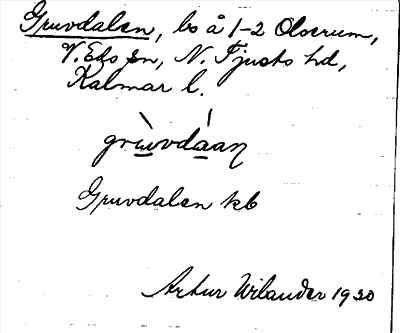 Gruvdalen, bo å 1-2 Olserum,
V. Eds sn, N. Tjusts hd,
Kalmar l.
grùvdáan
Gruvdalen kb
Artur Wilander 1930